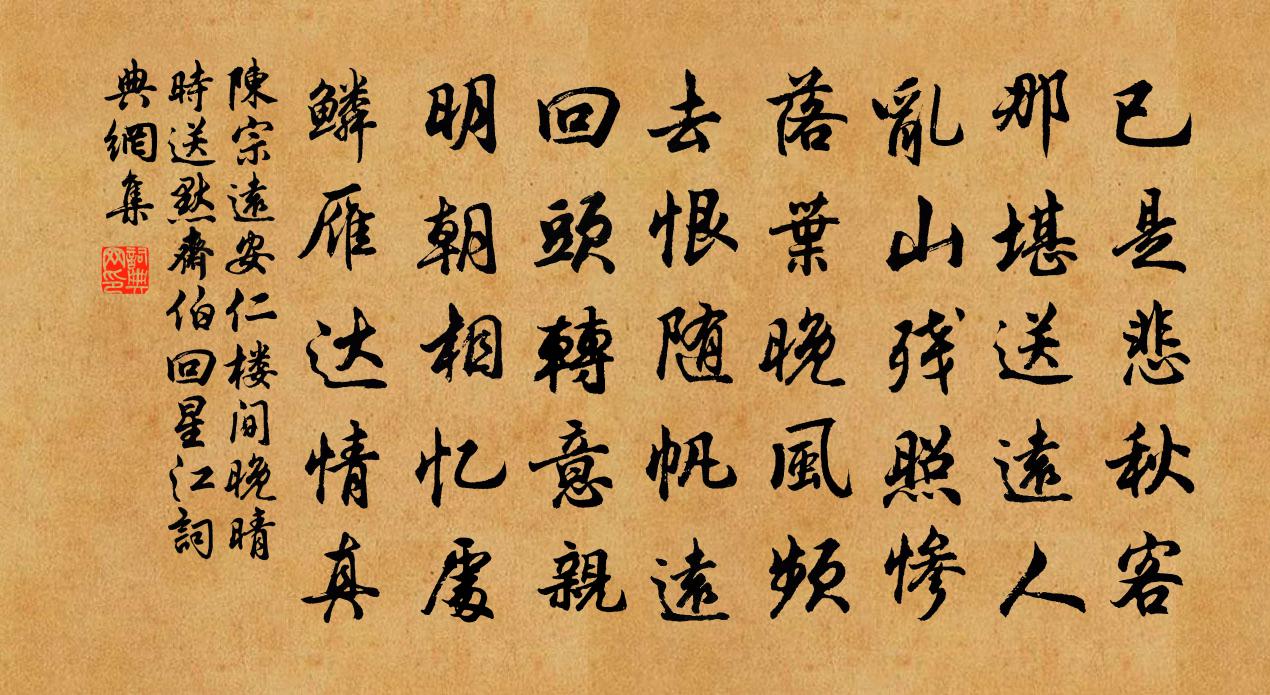 已是悲秋客
那堪送遠人
亂山残照慘
落葉晚風頻
去恨随帆遠
回頭轉意親
明朝相忆處
鱗雁达情真
陳宗遠安仁楼间晚晴
時送默齋伯回星江詞
典網集
詞典
网印